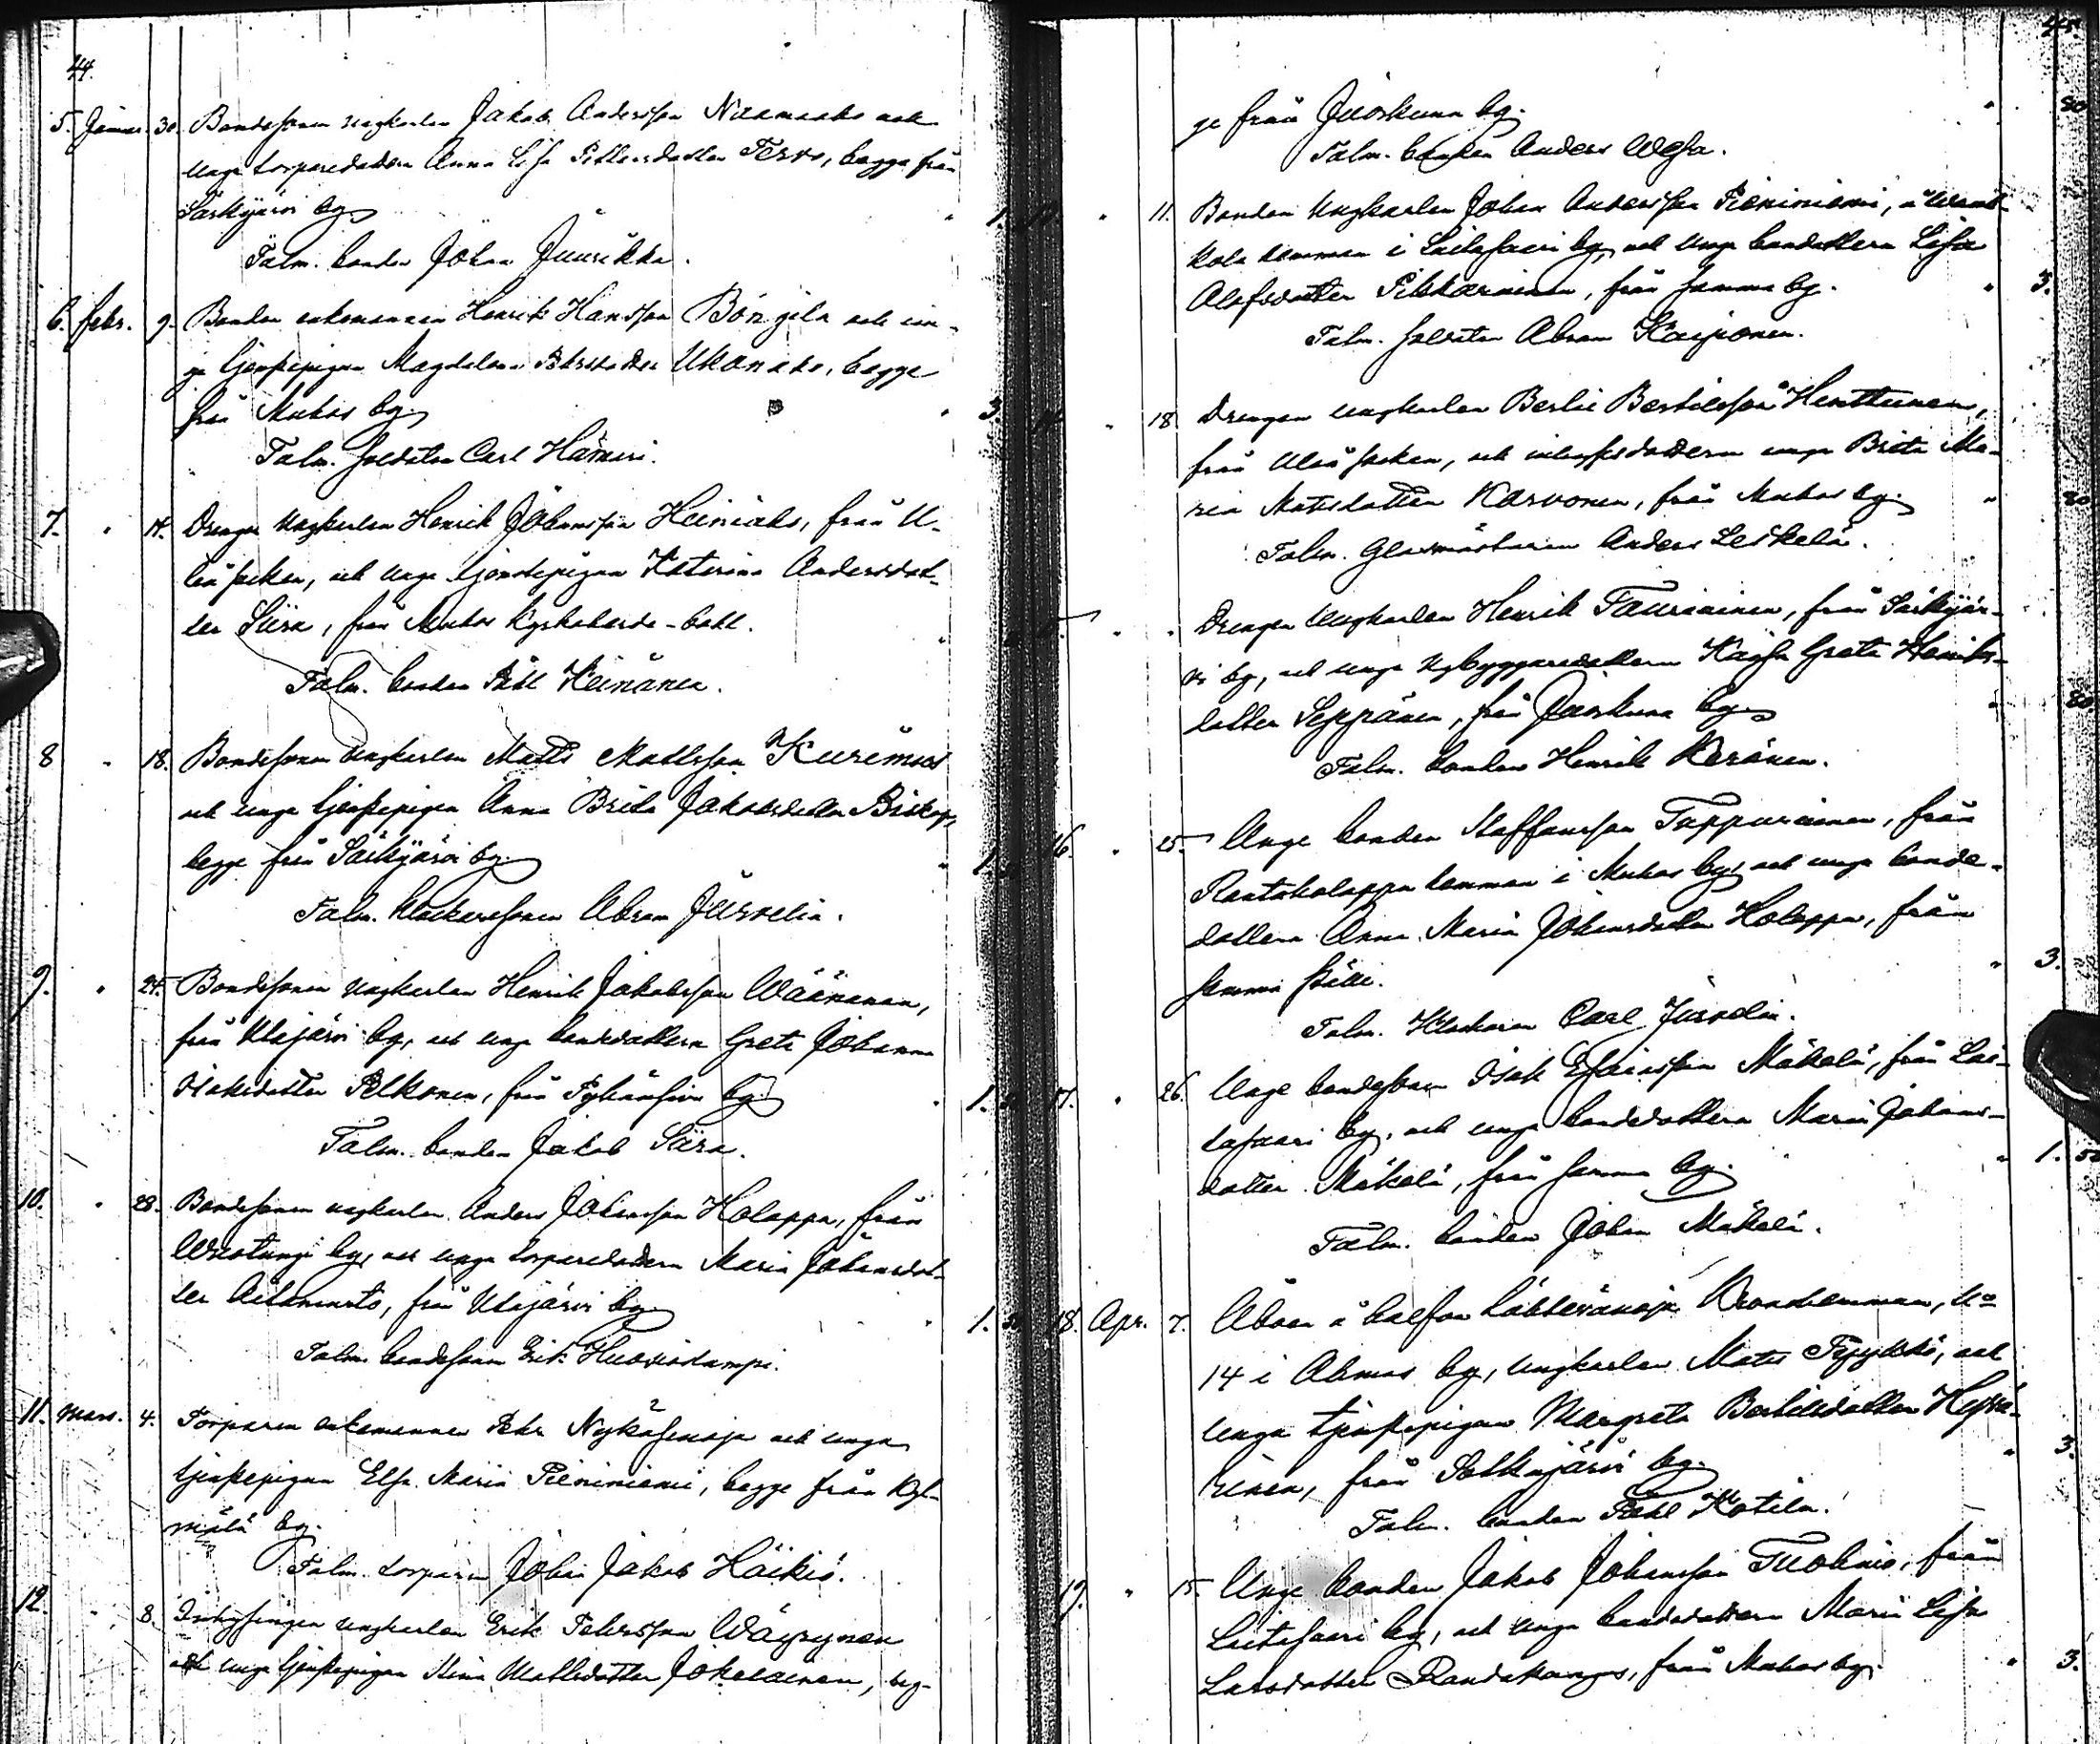 44.
5. Januar. 30. Bondesonen ungkarlen Jakob Andersson Naamanka och
unga torparedottern Anna Lisa Pettersdotter Tervo, begge från
Särkijärvi by
Talm. bonden Johan Juurikka.
6. Febr. 9. Bonden enkomannen Henrik Hansson Böngila och un-
ga tjenstepigan Magdalena Petersdotter Ukonaho, begge
från Muhos by " 3.
Talm. soldaten Carl Hämeri.
7. " 14. Drengen ungkarlen Henrik Johansson Heiniaho, från U-
leå socken, och unga tjenstepigan Katarina Andersdot-
ter Siira, från Muhos Kyrkoherde-bohl.
Talm. bonden Påhl Heinänen.
8 " 18. Bondesonen ungkarlen Matts Mattsson Kurimus
och unga tjenstepigan Anna Brita Jakobsdotter Biskop,
begge från Särkijärvi by " 1.
Talm. klockaresonen Abram Jürvelin.
9. " 24. Bondesonen ungkarlen Henrik Jakobsson Wäänänen,
från Utajärvi by, och unga bondedottern Greta Johanna
Isaksdotter Pelkonen, från Pyhänsivu by " 1. 50
Talm. bonden Jakob Siira.
10. " 28. Bondesonen ungkarlen Anders Johansson Holappa, från
Wuotungi by, och unga torparedottern Maria Johansdot-
ter Ahmanaho, från Utajärvi by " 1. 50
Talm. bondesonen Erik Huovinlampi.
11. Mars. 4. Torparen enkemannen Petr Nykäsenoja och unga
tjenstepigan Elsa Maria Pieniniemi, begge från Kyl-
mälä by.
Talm. torparen Johan Jakob Häikiö.
12. " 8. Inhysingen ungkarlen Erik Petersson Wäyrynen
och unga tjenstepigan Stina Mattsdotter Jokelainen, beg-
45.
ge från Juorkuna by. " 80
Talm. bonden Anders Wesa.
" 11. Bonden ungkarlen Johan Andersson Pieniniemi, å
kola hemman i Laitasaari by, och unga bondedottern Lisa
Olofsdotter Pikkarainen, från samma by. " 3.
Talm. soldaten Abram Kaiponen.
" 18 Drengen ungkarlen Bertil Bertilsson Henttunen,
från Uleå socken, och inhysesdottern unga Brita Ma-
ria Matsdotter Karvonen, från Muhos by. " 80
Talm. Glasmästaren Anders Leskelä.
" " Drengen ungkarlen Henrik Tauriainen, från Särkijär-
vi by, och unga nybyggaredottern Kaisa Greta Henriks-
dotter Seppänen, från Juorkuna by " 80
Talm. bonden Henrik Keränen.
16. " 25. Unge bonden Staffansson Tappurainen, från
Rantaholappa hemman i Muhos by, och unga bonde-
dottern Anna Maria Johansdotter Holappa, från
samma ställe. " 3.
Talm. Klockaren Carl Jürvelin.
17. " 26. Unge bondesonen Isak Esaiasson Mäkelä, från Lai-
tasaari by, och unga bondedottern Maria Johans-
dotter Mäkelä, från samma by. " 1. 50
Talm. bonden Johan Mäkelä.
18. Apr. 7. Åboen å halfva Lähtevänoja Kronohemman, No
14 i Ahmas by, ungkarlen Mats Tyykkö, och
unga tjenstepigan Margreta Bertilsdotter Hyvä-
rinen, från Sotkajärvi by. " 3.
Talm. bonden Påhl Kotila.
19. " 15. Unge bonden Jakob Johansson Tuohino, från
Laitasaari by, och unga bondedottern Maria Lisa
Larsdotter Randakangas, från Muhos by. " 3.